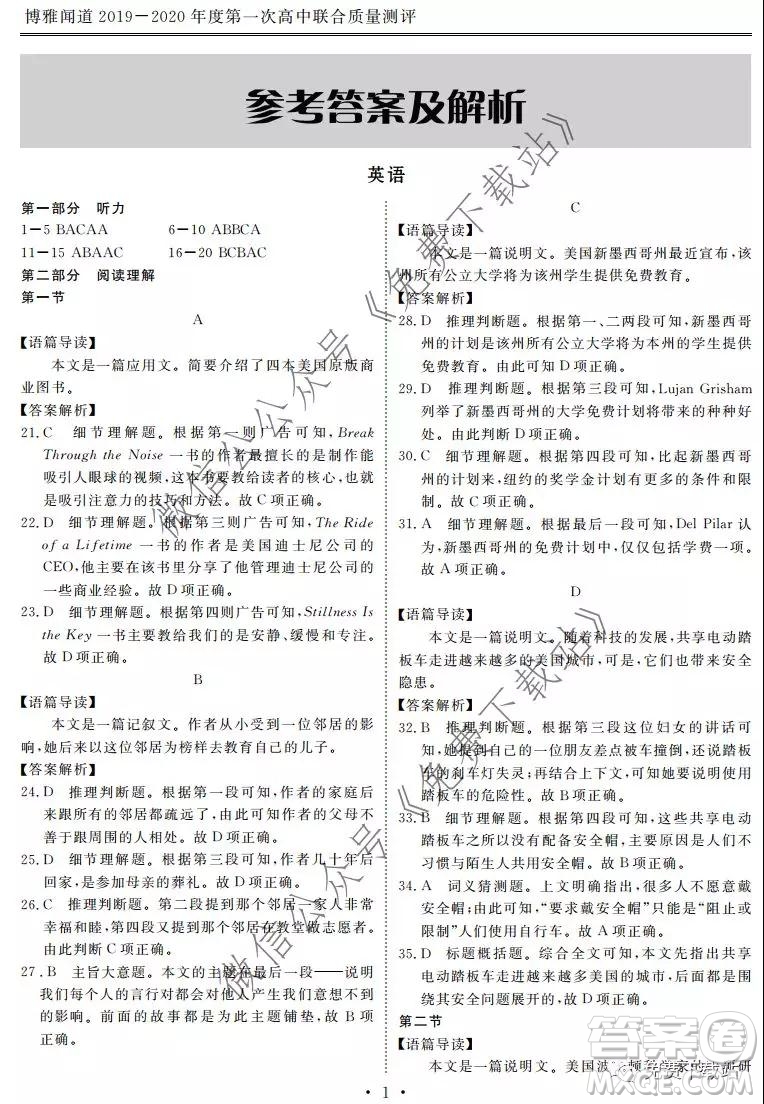 博雅闻道2019－2020年度第一次高中联合质量测评
参考答案及解析
英语
第一部分　听力
1－5 BACAA　　6－10 ABBCA
11－15 ABAAC　　16－20 BCBAC
第二部分　阅读理解
第一节
A
【语篇导读】
本文是一篇应用文。简要介绍了四本美国原版商
业图书。
【答案解析】
21. C　细节理解题。根据第一则广告可知，Break
Through the Noise 一书的作者最擅长的是制作能
吸引人眼球的视频，这本书要教给读者的核心，也就
是吸引注意力的技巧和方法。故C项正确。
22. D　细节理解题。根据第三则广告可知，The Ride
of a Lifetime 一书的作者是美国迪士尼公司的
CEO，他主要在该书里分享了他管理迪士尼公司的
一些商业经验。故D项正确。
23. D　细节理解题。根据第四则广告可知，Stillness Is
the Key 一书主要教给我们的是安静、缓慢和专注。
故D项正确。
B
【语篇导读】
本文是一篇记叙文。作者从小受到一位邻居的影
响，她后来以这位邻居为榜样去教育自己的儿子。
【答案解析】
24. D　推理判断题。根据第一段可知，作者的家庭后
来跟所有的邻居都疏远了，由此可知作者的父母不
善于跟周围的人相处。故D项正确。
25. D　细节理解题。根据第三段可知，作者几十年后
回家，是参加母亲的葬礼。故D项正确。
26. C　推理判断题。第二段提到那个邻居一家人非常
幸福和睦，第四段又提到那个邻居在教堂做志愿者。
由此判断C项正确。
27. B　主旨大意题。本文的主题在最后一段——说明
我们每个人的言行对都会对他人产生我们意想不到
的影响。前面的故事都是为此主题铺垫，故B项
正确。
C
【语篇导读】
本文是一篇说明文。美国新墨西哥州最近宣布，该
州所有公立大学将为该州学生提供免费教育。
【答案解析】
28. D　推理判断题。根据第一、二两段可知，新墨西哥
州的计划是该州所有公立大学将为本州的学生提供
免费教育。由此可知D项正确。
29. D　推理判断题。根据第三段可知，Lujan Grisham
列举了新墨西哥州的大学免费计划将带来的种种好
处。由此判断D项正确。
30. C　细节理解题。根据第四段可知，比起新墨西哥
州的计划来，纽约的奖学金计划有更多的条件和限
制。故C项正确。
31. A　细节理解题。根据最后一段可知，Del Pilar 认
为，新墨西哥州的免费计划中，仅仅包括学费一项。
故A项正确。
D
【语篇导读】
本文是一篇说明文。随着科技的发展，共享电动踏
板车走进越来越多的美国城市，可是，它们也带来安全
隐患。
【答案解析】
32. B　推理判断题。根据第三段这位妇女的讲话可
知，她提到自己的一位朋友差点被车撞倒，还说踏板
车的刹车灯失灵；再结合上下文，可知她要说明使用
踏板车的危险性。故B项正确。
33. B　细节理解题。根据第四段可知，这些共享电动
踏板车之所以没有配备安全帽，主要原因是人们不
习惯与陌生人共用安全帽。故B项正确。
34. A　词义猜测题。上文明确指出，很多人不愿意戴
安全帽，由此推断，“要求戴安全帽”只会是“阻止或
限制”人们使用自行车。故A项正确。
35. D　标题概括题。综合全文可知，本文关于共享电
动踏板车走进越来越多美国的城市，并由此引发的
围绕其安全性展开的讨论。故D项正确。
第二节
【语篇导读】
本文是一篇说明文。美国波
研
· 1 ·
微信公众号《免费下载站》
微信公众号《免费下载站》
答案圈